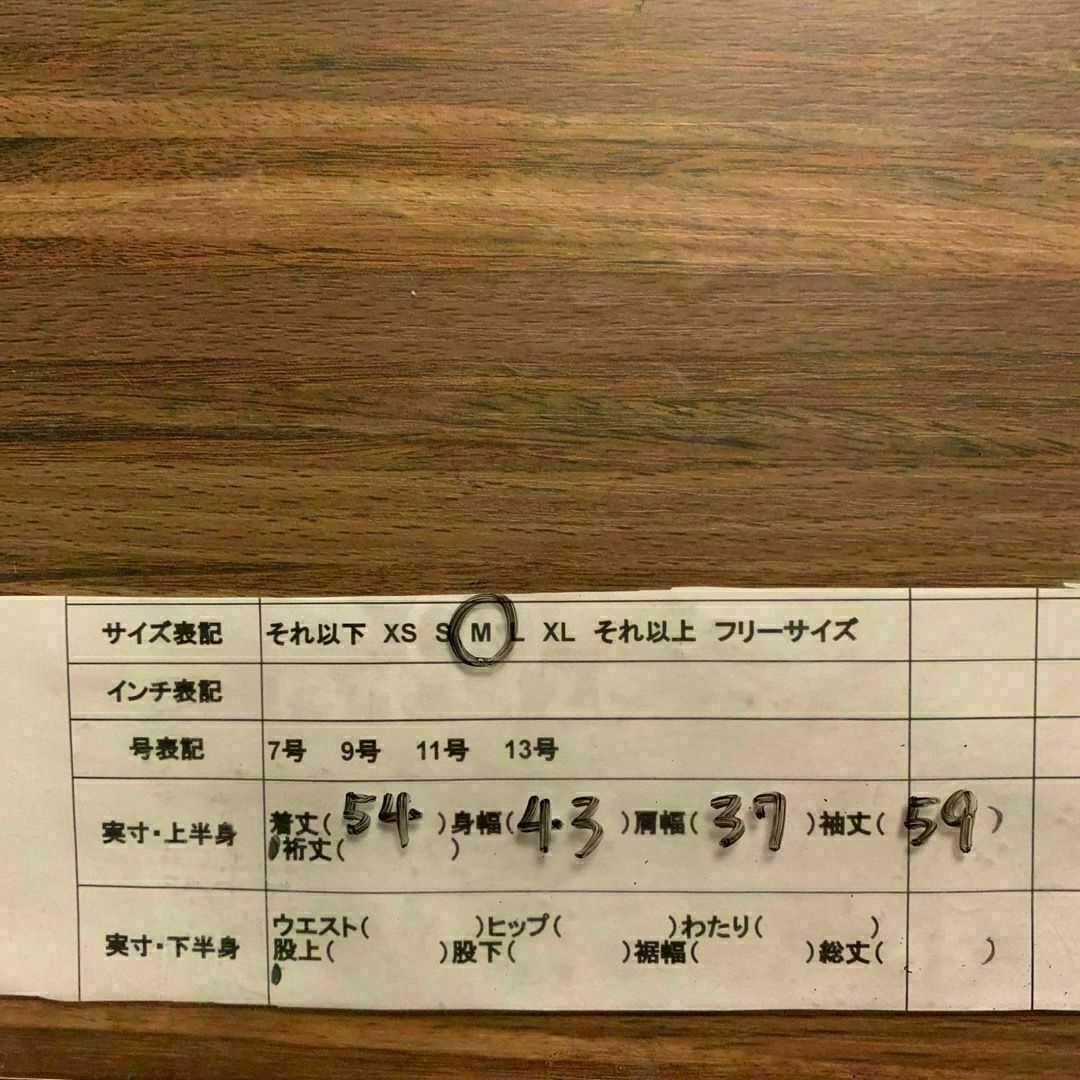 サイズ表記 それ以下 XS S M L XL それ以上 フリーサイズ
インチ表記
号表記 7号 9号 11号 13号
実寸・上半身 着丈( 54 )身幅( 43 )肩幅( 37 )袖丈( 59 )
裄丈( )
実寸・下半身 ウエスト( )ヒップ( )わたり( )
股上( )股下( )裾幅( )総丈( )